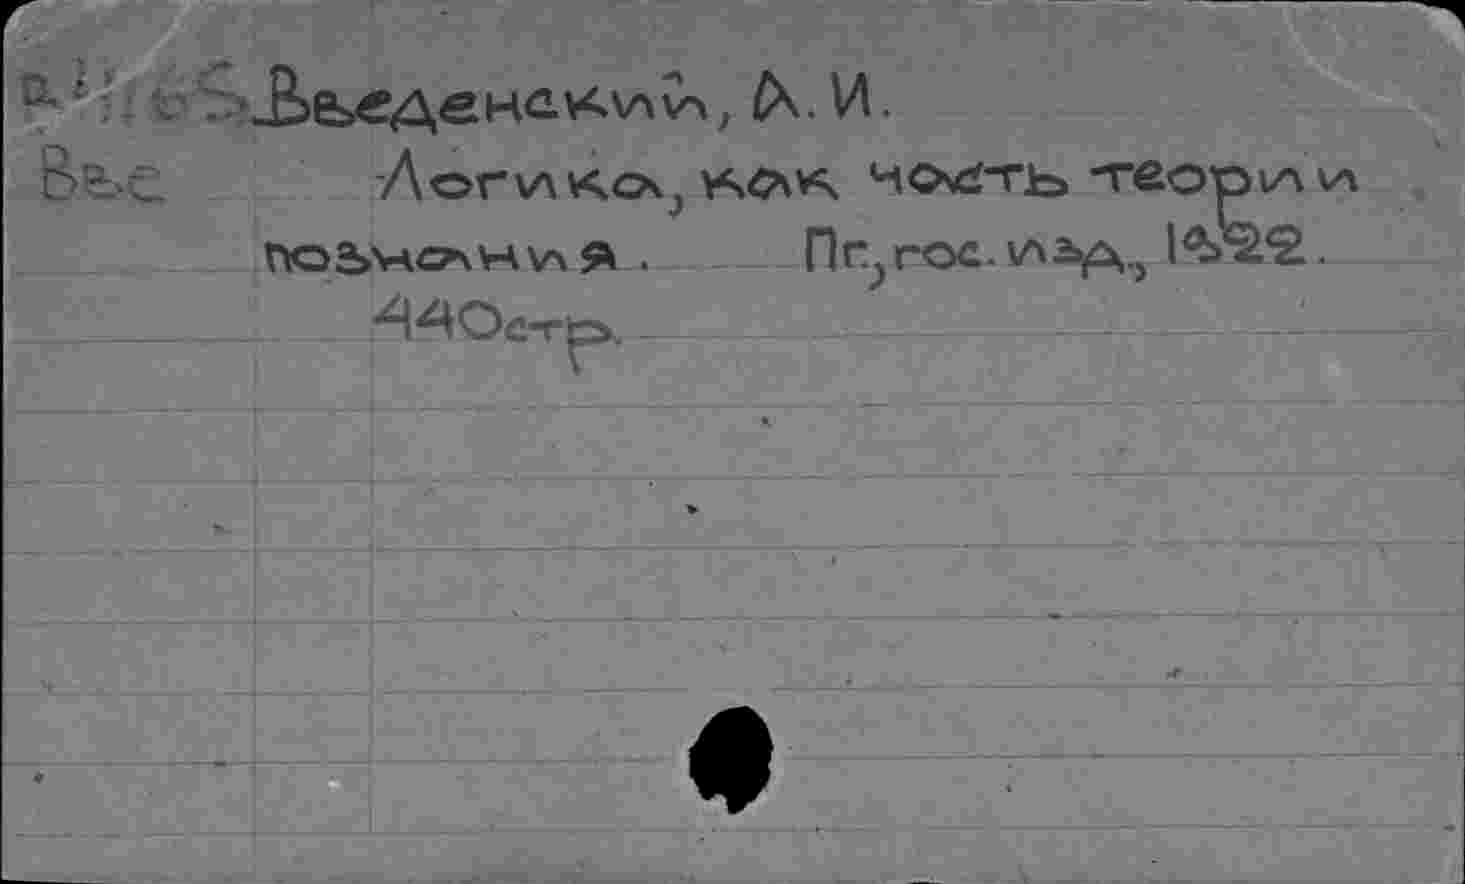 Введенский, А. И.
Ввс Логика, как часть теории
познания. Пг., гос. изд., 1922.
440стр.